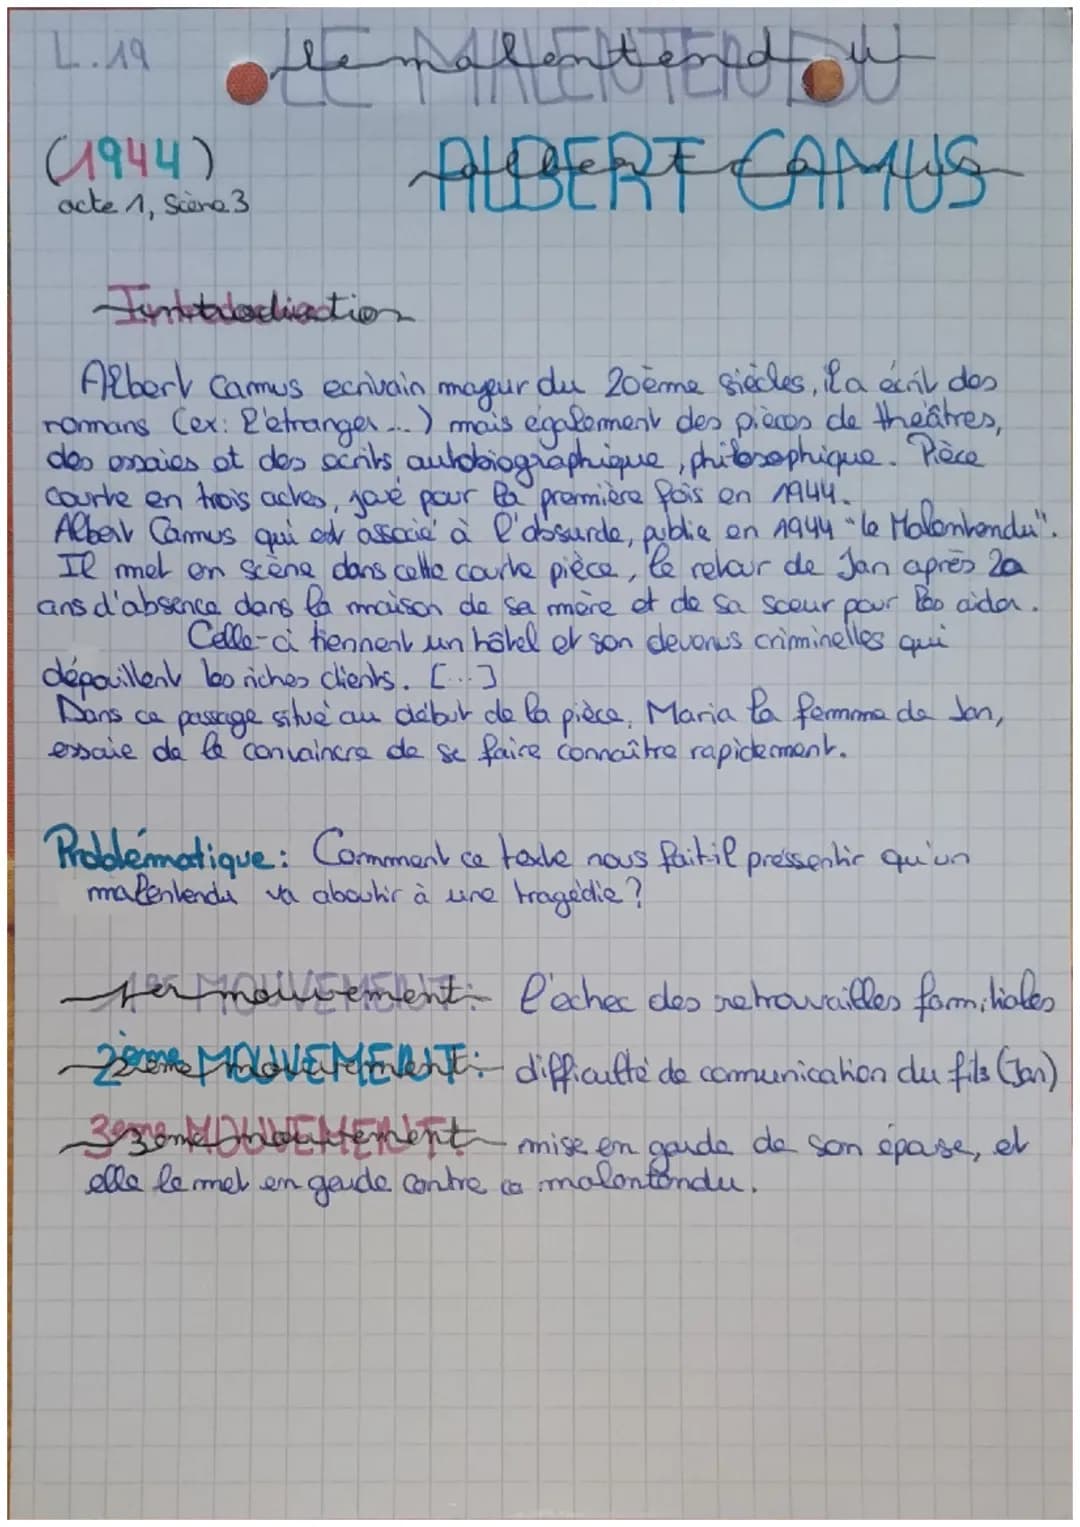 L.19
LE MALENTENDU
(1944)
ALBERT CAMUS
acte 1, Scène 3
Introduction
Albert Camus ecrivain majeur du 20ème siècles, il a écrit des
romans (ex: l'etranger...) mais également des pièces de theâtres,
des essaies et des écrits autobiographique, philosophique. Pièce
courte en trois actes, joué pour la première fois en 1944.
Albert Camus qui est associé à l'absurde, publie en 1944 "le Malentendu".
Il met en scène dans cette courte pièce, le retour de Jan après 20
ans d'absence dans la maison de sa mère et de sa soeur pour les aider.
Celle-ci tiennent un hôtel et son devenus criminelles qui
dépouillent les riches clients. [...]
Dans ce passage situé au début de la pièce, Maria la femme de Jan,
essaie de le convaincre de se faire connaître rapidement.
Problématique: Comment ce texte nous fait-il pressentir qu'un
malentendu va aboutir à une tragédie?
1er MOUVEMENT: l'échec des retrouvailles familiales
2ème MOUVEMENT: difficulté de communication du fils (Jan)
3eme MOUVEMENT: mise en garde de son épouse, et
elle le met en garde contre ce malentendu.